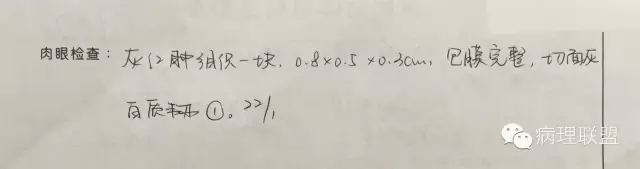 肉眼检查：灰红肿组织一块，0.8×0.5×0.3cm，包膜完整，切面灰
白质 ①。22/1
病理联盟